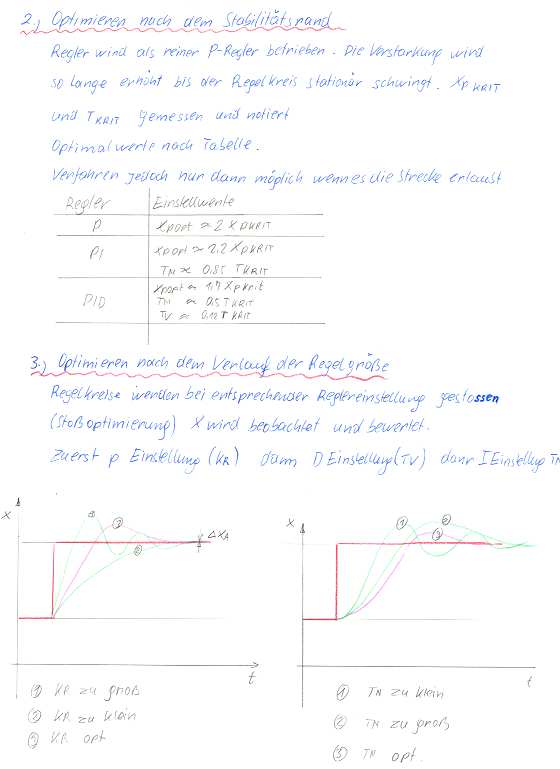 2.) Optimieren nach dem Stabilitätsrand
Regler wird als reiner P-Regler betrieben. Die Verstärkung wird
so lange erhöht bis der Regelkreis stationär schwingt. XpKRIT
und TKRIT gemessen und notiert
Optimalwerte nach Tabelle.
Verfahren jedoch nur dann möglich wenn es die Strecke erlaubt
Regler Einstellwerte
P Xpopt ≈ 2 XpKRIT
PI Xpopt ≈ 2,2 XpKRIT
TN ≈ 0,85 TKRIT
PID Xpopt ≈ 1,7 Xpkrit
TN ≈ 0,5 TKRIT
TV ≈ 0,12 TKRIT
3.) Optimieren nach dem Verlauf der Regelgröße
Regelkreise werden bei entsprechender Reglereinstellung gestossen
(Stoßoptimierung) X wird beobachtet und bewertet.
Zuerst P Einstellung (KR) dann D Einstellung (TV) dann I Einstellung TN
X 1 3 2 ΔXA t
X 1 2 3 t
1 KR zu groß
2 KR zu klein
3 KR opt
1 TN zu klein
2 TN zu groß
3 TN opt.